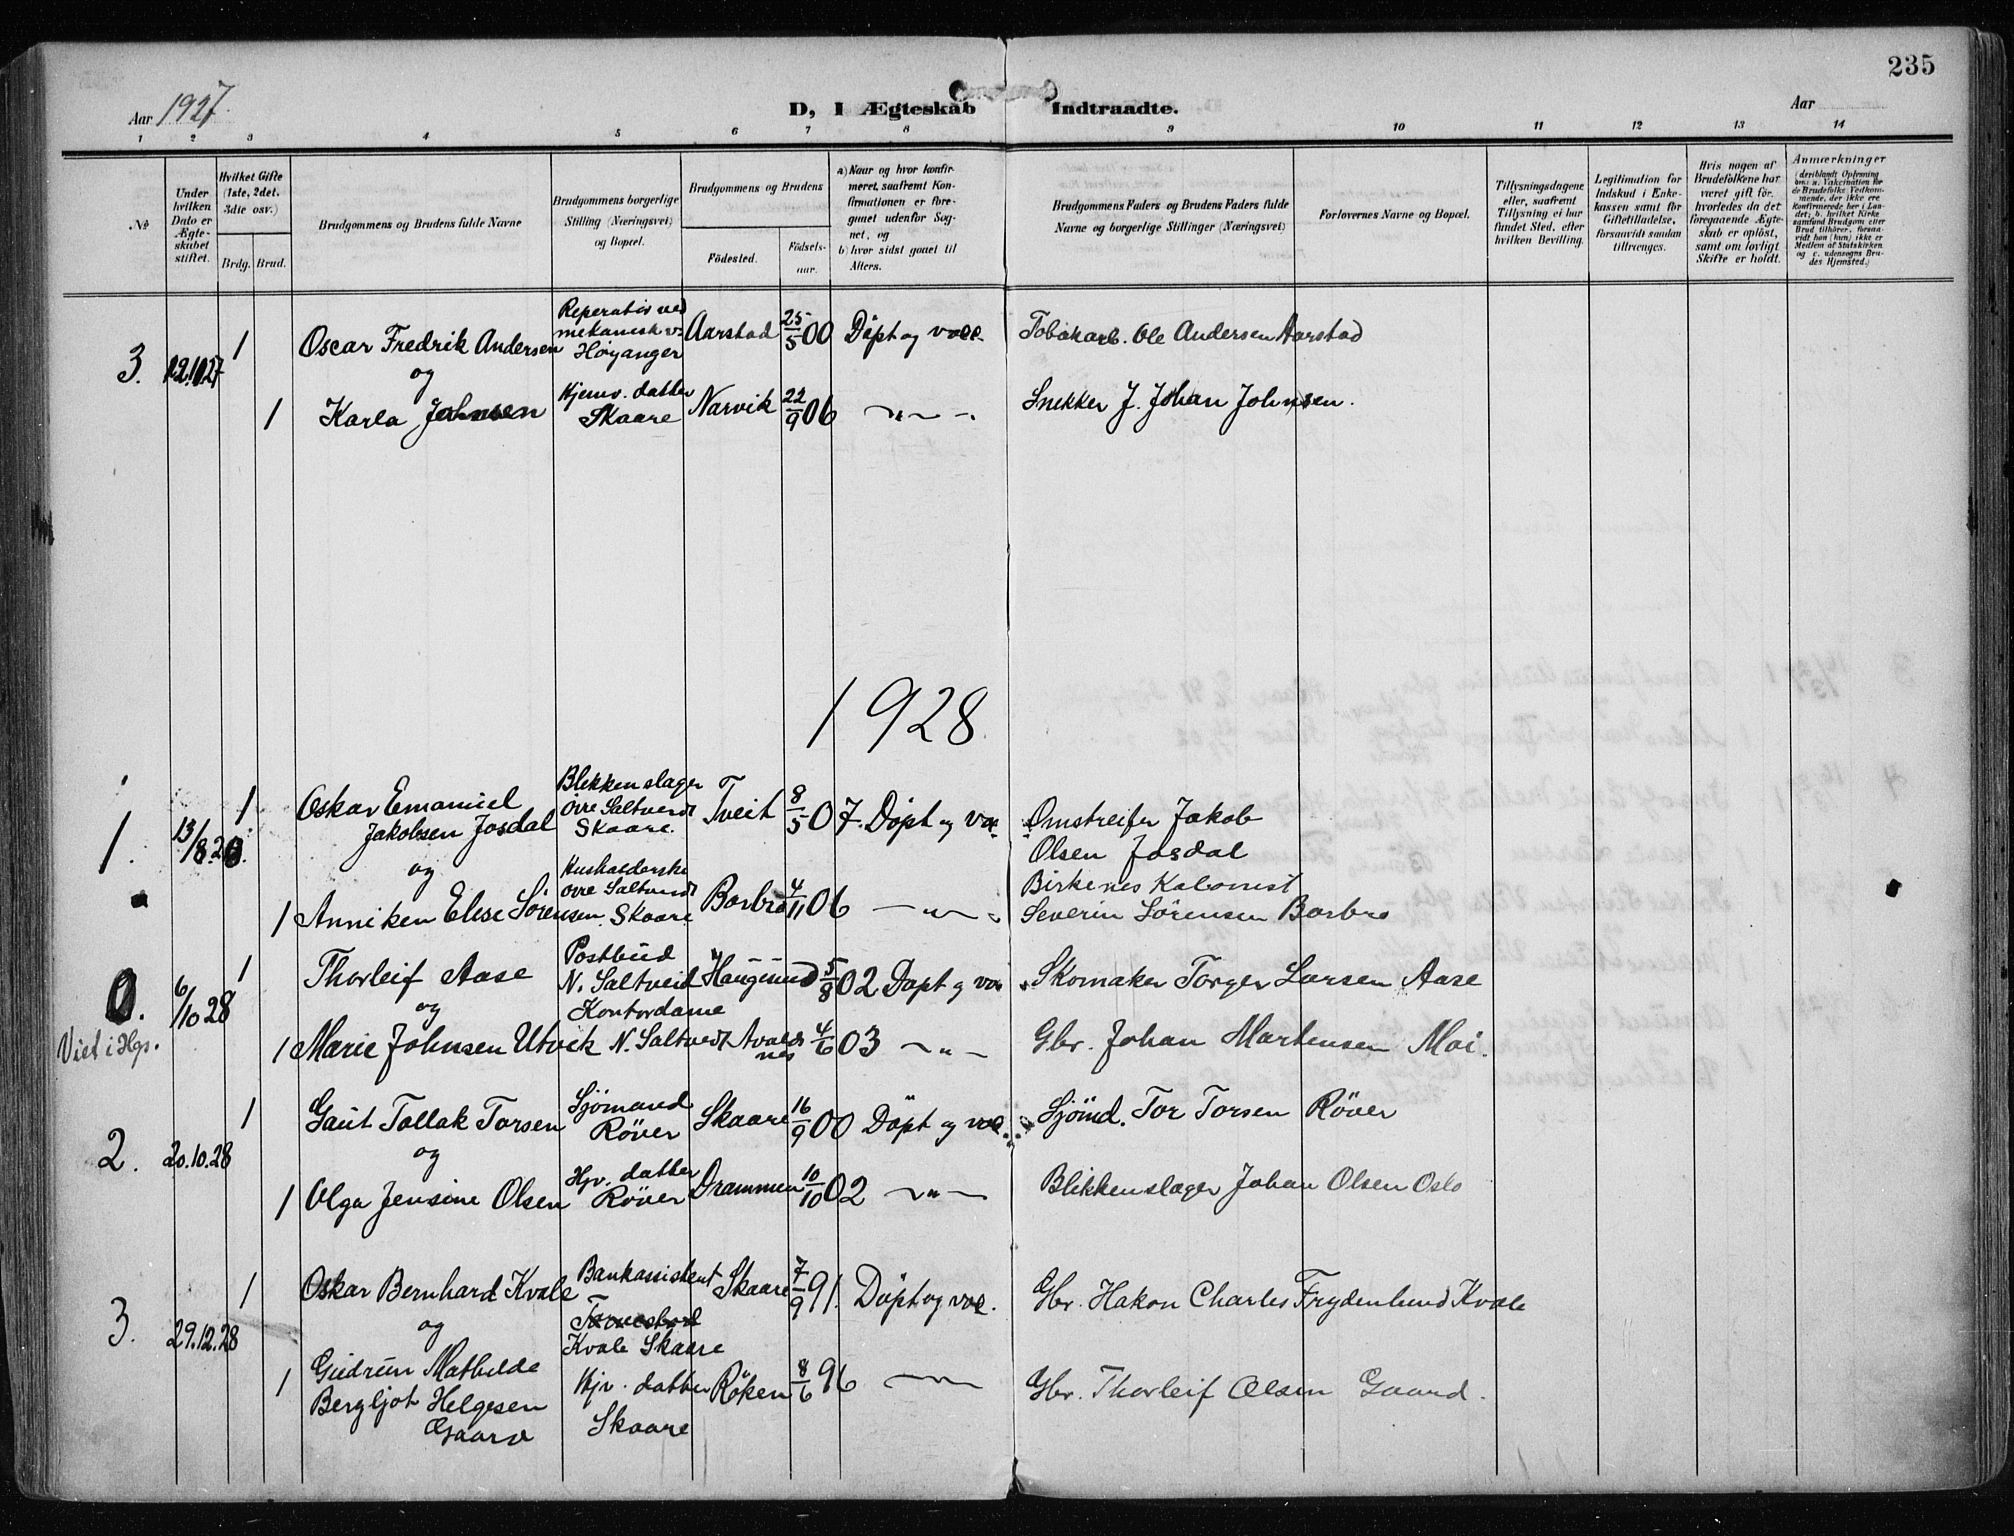 235
Aar 1927.
D, I Ægteskab Indtraadte.
Aar
1 2 3 4 5 6 7 8 9 10 11 12 13 14
№
Under hvilken Dato er Ægteskabet stiftet.
Hvilket Gifte (1ste, 2det. 3die osv.)
Brdg. Brud.
Brudgommens og Brudens fulde Navne
Brudgommens borgerlige Stilling (Næringsvei) og Bopæl.
Brudgommens og Brudens
Fødested.
Fødselsaar.
a) Naar og hvor konfirmeret, saafremt Konfirmationen er foregaaet udenfor Sognet, og
b) hvor sidst gaaet til Alters.
Brudgommens Faders og Brudens Faders fulde Navne og borgerlige Stillinger (Næringsvei)
Forlovernes Navne og Bopæl.
Tillysningsdagene eller, saafremt Tillysning ei har fundet Sted, efter hvilken Bevilling.
Legitimation for Indskud i Enkekassen samt for Giftetilladelse, forsaavidt saadan tiltrænges.
Hvis nogen af Brudefolkene har været gift før, hvorledes da det foregaaende Ægteskab er opløst, samt om lovligt Skifte er holdt.
Anmærkninger (deriblandt Oplysning om: a. Vakcination for de Brudefolks Vedkommende, der ikke ere Konfirmerede her i Landet; b. hvilket Kirkesamfund Brudgom eller Brud tilhører, forsaavidt han (hun) ikke er Medlem af Statskirken og c. udensogns Brudes Hjemsted.)
3. 22.10 27 1 Oscar Fredrik Andersen
Reperatör ved mekanisk v. Høyanger
Aarstad 25/5 00 Döpt og vac.
Tobakarb. Ole Andersen Aarstad
og
1 Karla Johnsen
Hjemv. datter Skaare
Narvik 22/9 06 — „ —
Snekker J. Johan Johnsen.
1928.
1. 13/8. 28. 1 Oskar Emanuel Jakobsen Josdal
Blekkenslager Övre Saltveit Skaare.
Tveit 8/5 07. Döpt og vac
Omstreifer Jakob Olsen Josdal
og
1 Anniken Elise Sörensen
Husholderske Övre Saltveit Skaare
Borbro 4/11 06 — „ —
Birkenes Kolonist
Severin Sörensen Borbro
0. 6/10 28 1 Thorleif Aase
Postbud N. Saltveit
Haugesund 5/8 02 Döpt og vac
Skomaker Torger Larsen Aase
Viet i Hgs.
og
1 Marie Johnsen Utvik
Kontordame N. Saltvedt
Avaldsnes 4/6 03 — „ —
Gbr. Johan Martensen Moi.
2. 20.10.28 1 Gaut Tollak Torsen
Sjömand Röver
Skaare 16/9 00 Döpt og vac.
Sjömd. Tor Torsen Röver
og
1 Olga Jensine Olsen
Hjv. datter Röver
Drammen 10/10 02 — „ —
Blikkenslager Johan Olsen Oslo
3. 29.12.28 1 Oskar Bernhard Kvale
Bankassistent
Kvale Skaare
Skaare 7/9 91. Döpt og vac.
Gbr. Hakon Charles Frydenlund Kvale
og
1 Gudrun Mathilde Bergljot Helgesen Gaard
Hjv. datter Skaare
Röken 8/6 96 — „ —
Gbr. Thorleif Olsen Gaard.